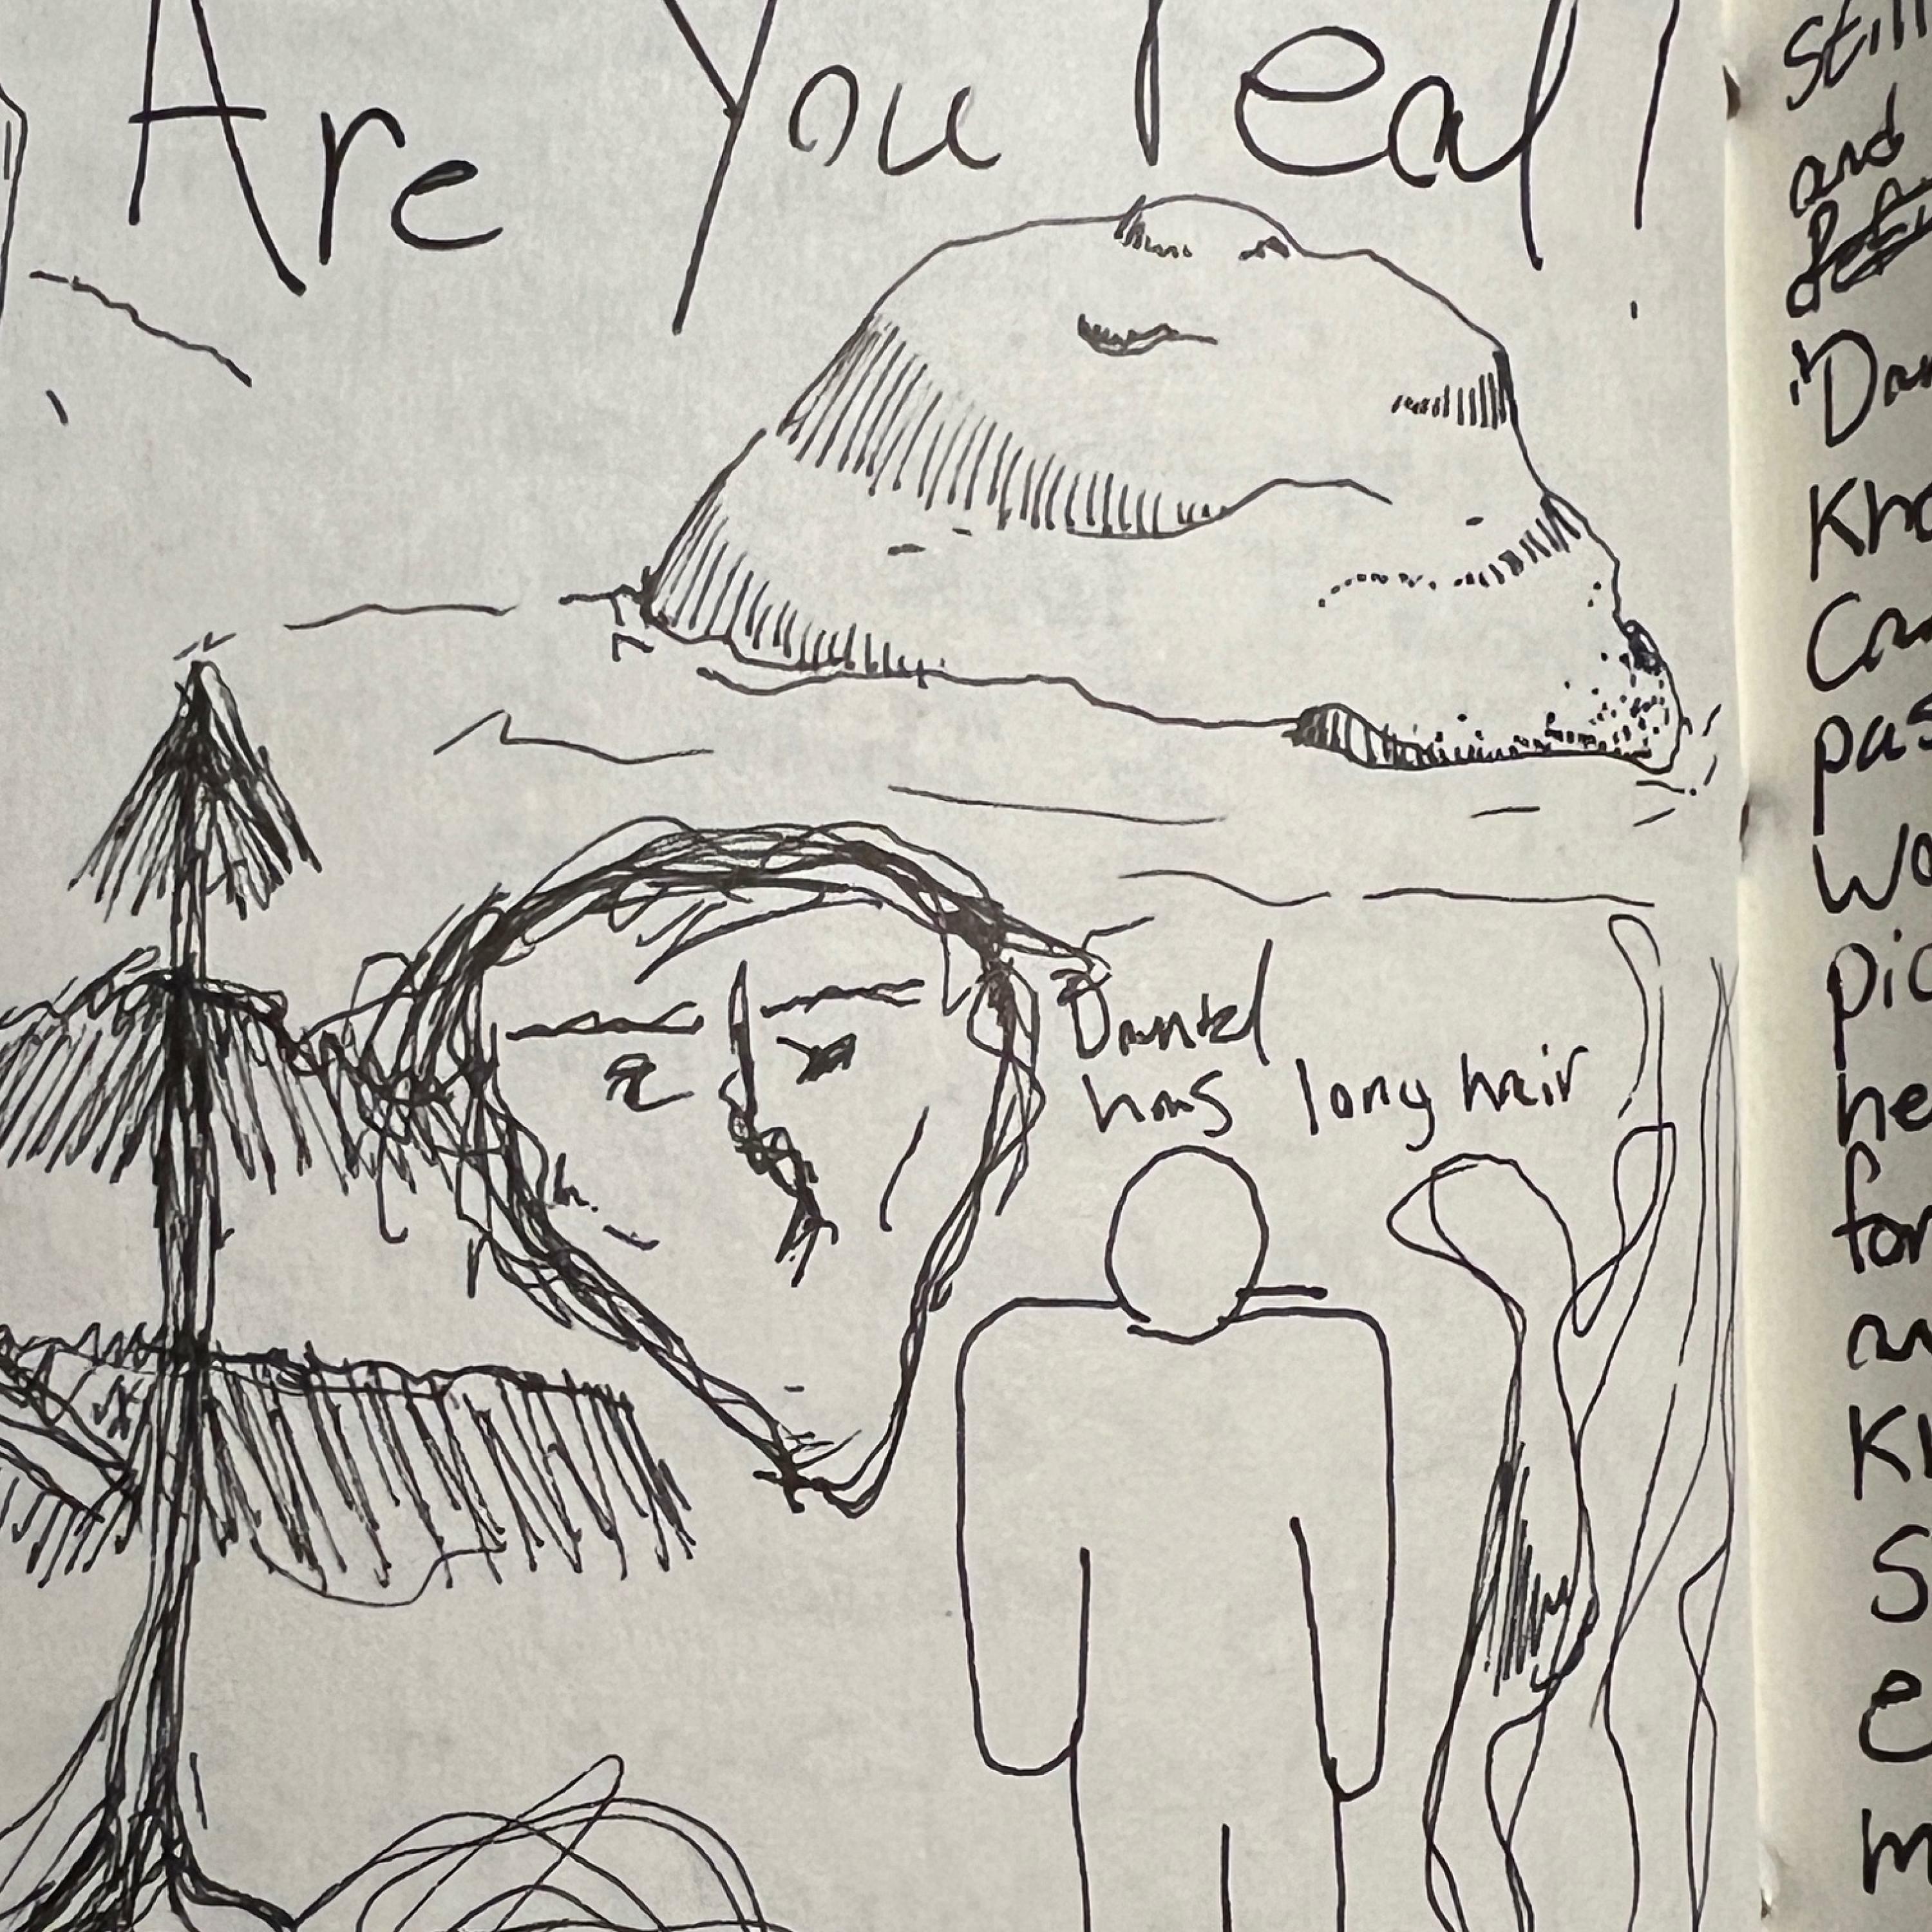 Are You real?
Daniel
has long hair
Still
and
Dan
Kno
Can
pas
wo
pic
he
for
Kn
S
e
m